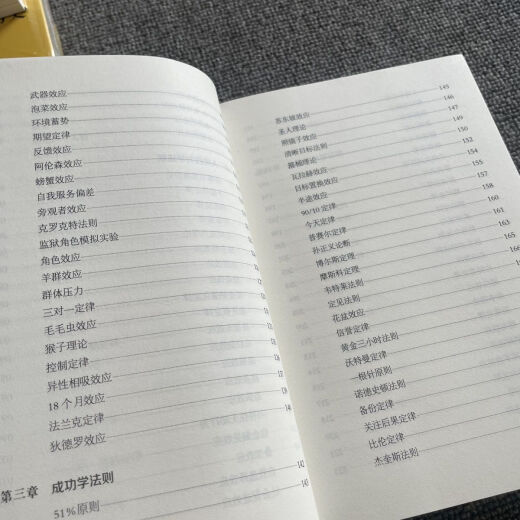 武器效应
泡菜效应
环境蓄势
期望定律
反馈效应
阿伦森效应
螃蟹效应
自我服务偏差
旁观者效应
克罗克特法则
监狱角色模拟实验
角色效应
羊群效应
群体压力
三对一定律
毛毛虫效应
猴子理论
控制定律
异性相吸效应
18个月效应
法兰克定律
狄德罗效应
第三章 成功学法则 142
51%原则 143
苏东坡效应 145
圣人理论 146
照镜子效应 147
清晰目标法则 149
籍桶理论 150
瓦拉赫效应 152
目标置换效应 154
半途效应 155
90/10定律 157
今天定律 158
普赛尔定律 160
孙正义论断 161
博尔斯定理 163
摩斯科定理 165
韦特莱法则 166
定见法则
花盆效应
信誉定律
黄金三小时法则
沃特曼定律
一根针原则
诺德史顿法则
备份定律
关注后果定律
比伦定律
杰奎斯法则